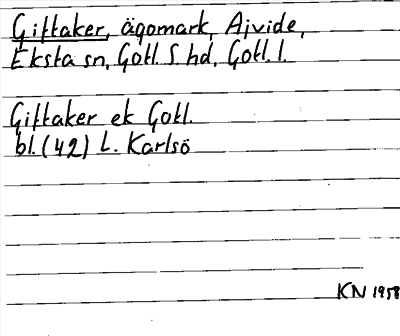 Giftaker, ägomark, Ajvide,
Eksta sn, Gotl. S. hd, Gotl. l.
Giftaker ek Gotl.
bl. (42) L. Karlsö
KN 1958